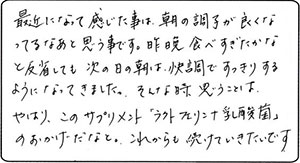 最近になって感じた事は、朝の調子が良くなっ
てるなあと思う事です。昨晩食べすぎたかな
と反省しても次の日の朝は、快調ですっきりする
ようになってきました。そんな時、思うことは、
やはり、このサプリメント「ラクトフェリンナ乳酸菌」
のおかげだなと。これからも続けていきたいです